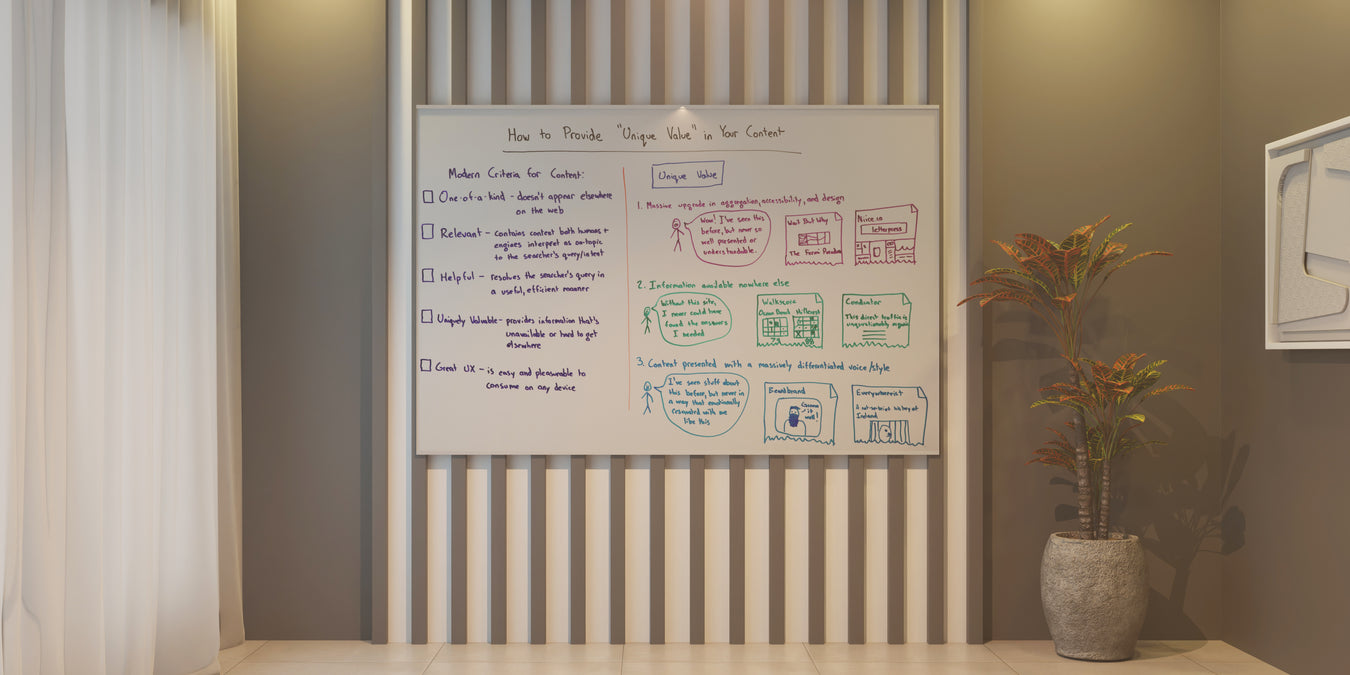 How to Provide "Unique Value" in Your Content
Modern Criteria for Content:
One-of-a-kind - doesn't appear elsewhere
on the web
Relevant - contains content both humans +
engines interpret as on-topic
to the searcher's query/intent
Helpful - resolves the searcher's query in
a useful, efficient manner
Uniquely Valuable - provides information that's
unavailable or hard to get
elsewhere
Great UX - is easy and pleasurable to
consume on any device
Unique Value
1. Massive upgrade in aggregation, accessibility, and design
Wow! I've seen this
before, but never so
well presented or
understandable.
Wait But Why
The Fermi Paradox
Niice.co
letterpress
2. Information available nowhere else
Without this site,
I never could have
found the answers
I needed
Walkscore
74
88
Conductor
This direct traffic is
unquestionably organic
3. Content presented with a massively differentiated voice/style
I've seen stuff about
this before, but never in
a way that emotionally
resonated with me
like this
Beardbrand
it
well!
Everywhereist
A not-so-brief history of
Ireland